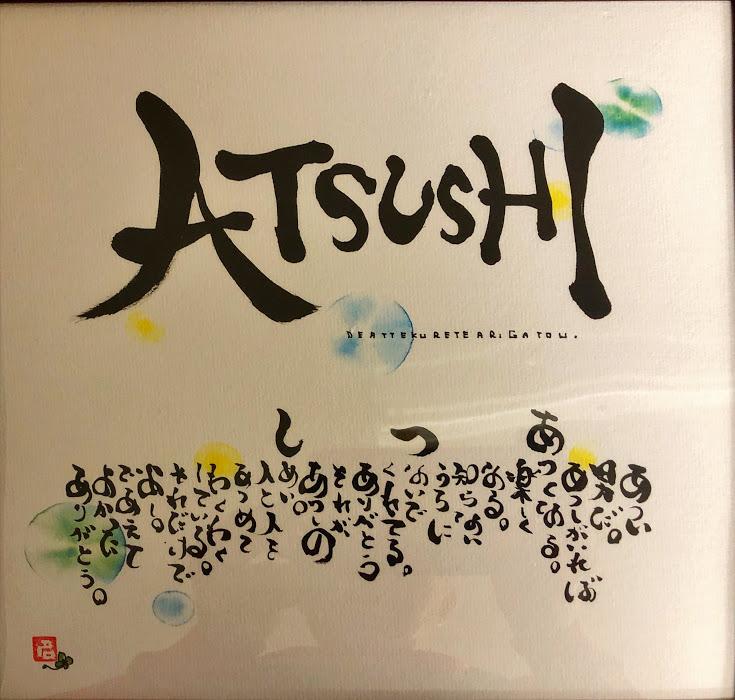 ATSUSHI
DEATTEKURETEARIGATOU.
あ
つ
し
あつい
男だ。
あつしがいれば
あつくなる。
楽しく
なる。
知らない
うちに
ないで
くれてる。
ありがとう
それが
あつしの
めい。
人と人を
あつめて
わくわく
している。
それだけで
よし。
であえて
よかった
ありがとう。